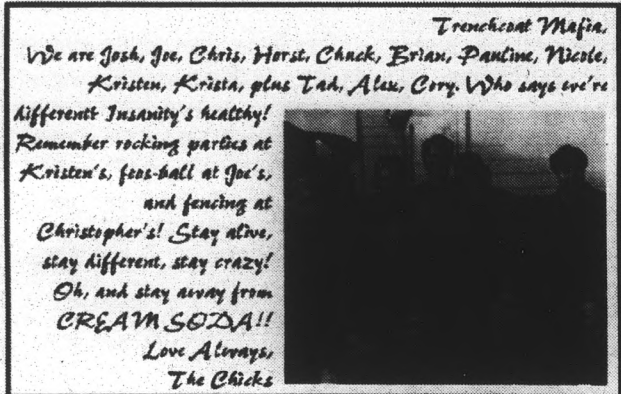 Trenchcoat Mafia,
We are Josh, Joe, Chris, Horst, Chuck, Brian, Pauline, Nicole,
Kristen, Krista, plus Tad, Alex, Cory. Who says we're
different? Insanity's healthy!
Remember rocking parties at
Kristen's, foos-ball at Joe's,
and fencing at
Christopher's! Stay alive,
stay different, stay crazy!
Oh, and stay away from
CREAM SODA!!
Love Always,
The Chicks